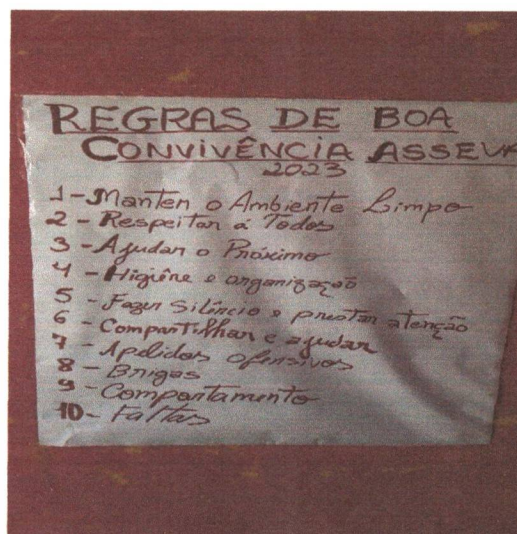 REGRAS DE BOA
CONVIVÊNCIA ASSEVA
2023
1 - Manter o Ambiente Limpo
2 - Respeitar á Todos
3 - Ajudar o Próximo
4 - Higiêne e organização
5 - Fazer Silêncio e prestar atenção
6 - Compartilhar e ajudar
7 - Apelidos Ofensivos
8 - Brigas
9 - Comportamento
10 - Faltas